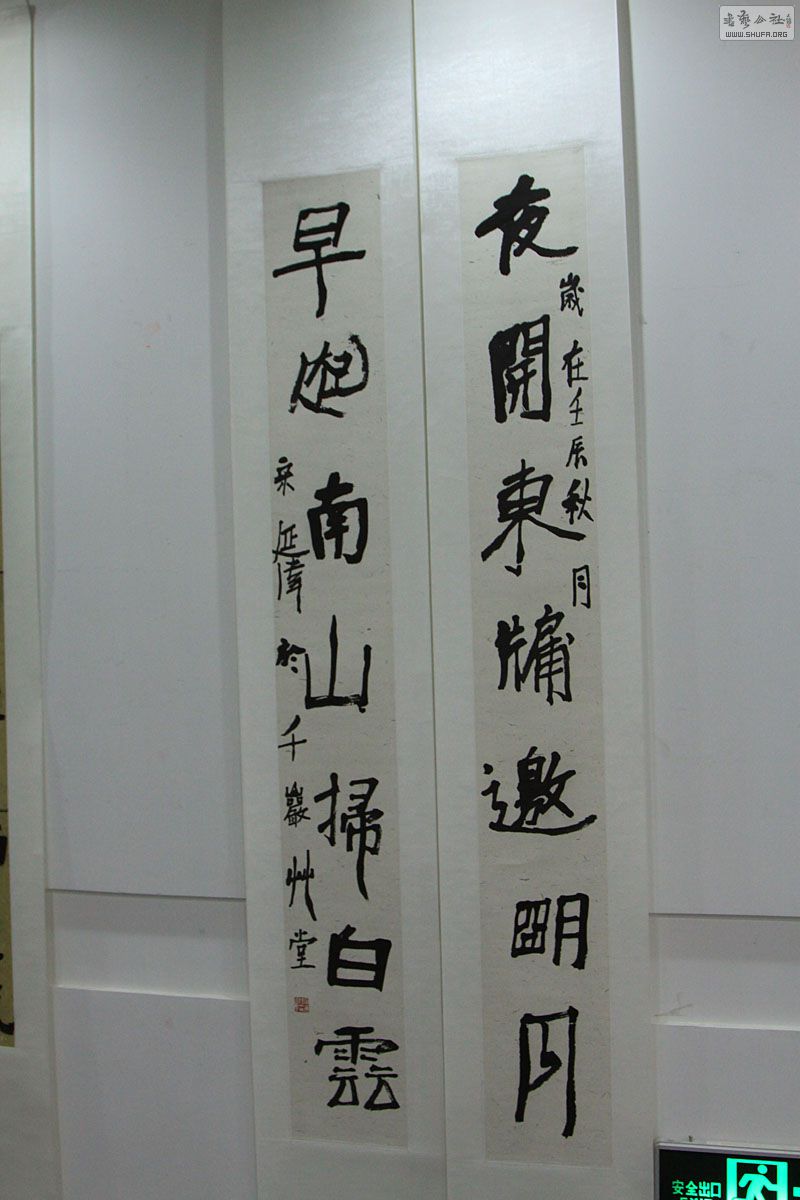 書藝公社
WWW.SHUFA.ORG
夜開東牖邀朙月
歲在壬辰秋月
早起南山掃白雲
宋延偉於千巖艸堂
安全出口